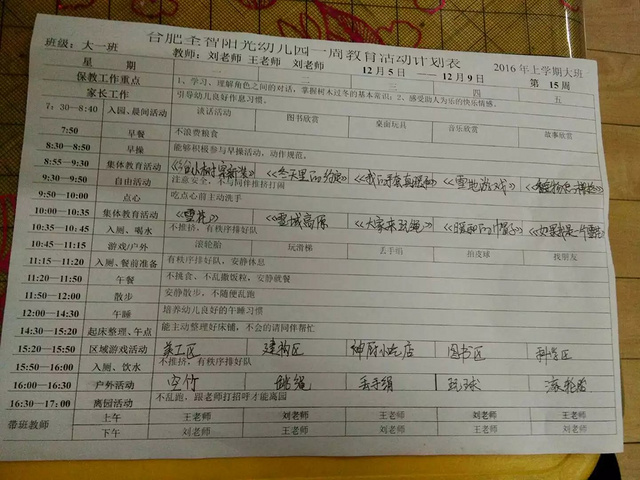 合肥全智阳光幼儿园一周教育活动计划表
班级：大一班 教师：刘老师 王老师 刘老师 2016年上学期大班
星 期 一 二 12月5日 —— 12月9日 第 15周
保教工作重点 1、学习、理解角色之间的对话，掌握树木过冬的基本常识；2、感受助人为乐的快乐情感。 四 五
家长工作 引导幼儿良好作息习惯。
7:30—8:40 入园、晨间活动 谈话活动 图书欣赏 桌面玩具 音乐欣赏 故事欣赏
7:50 早餐 不浪费粮食
8:30—8:50 早操 能够积极参与早操活动，动作规范。
8:55—9:30 集体教育活动 《给小树穿新装》 《冬天里的约定》 《雪地游戏》
9:30—9:50 自由活动 注意安全，不与同伴推挤打闹
9:50—10:00 点心 吃点心前主动洗手
10:00—10:35 集体教育活动 《雪花》 《雪域高原》 《大家来玩绳》 《暖和的帽子》 《如果我是一片雪花》
10:35—10:45 入厕、喝水 不推挤，有秩序排好队
10:45—11:15 游戏/户外 滚轮胎 玩滑梯 丢手绢 拍皮球 找朋友
11:15—11:20 入厕、餐前准备 有秩序排好队，安静休息
11:20—11:50 午餐 不挑食、不乱撒饭粒，安静就餐
11:50—12:00 散步 安静散步，不随便乱跑
12:00—14:30 午睡 培养幼儿良好的午睡习惯
14:30—15:20 起床整理、午点 能主动整理好床铺，不会的请同伴帮忙
15:20—15:50 区域游戏活动 美工区 建构区 神厨小吃店 图书区 科学区
15:50—16:00 入厕、饮水 不推挤，有秩序排好队
16:00—16:30 户外活动 空竹 跳绳 丢手绢 玩球 滚轮胎
16:30—17:00 离园活动 不乱跑，跟老师打招呼才能离园
带班教师 上午 王老师 刘老师 王老师 刘老师 王老师
下午 刘老师 王老师 刘老师 王老师 刘老师